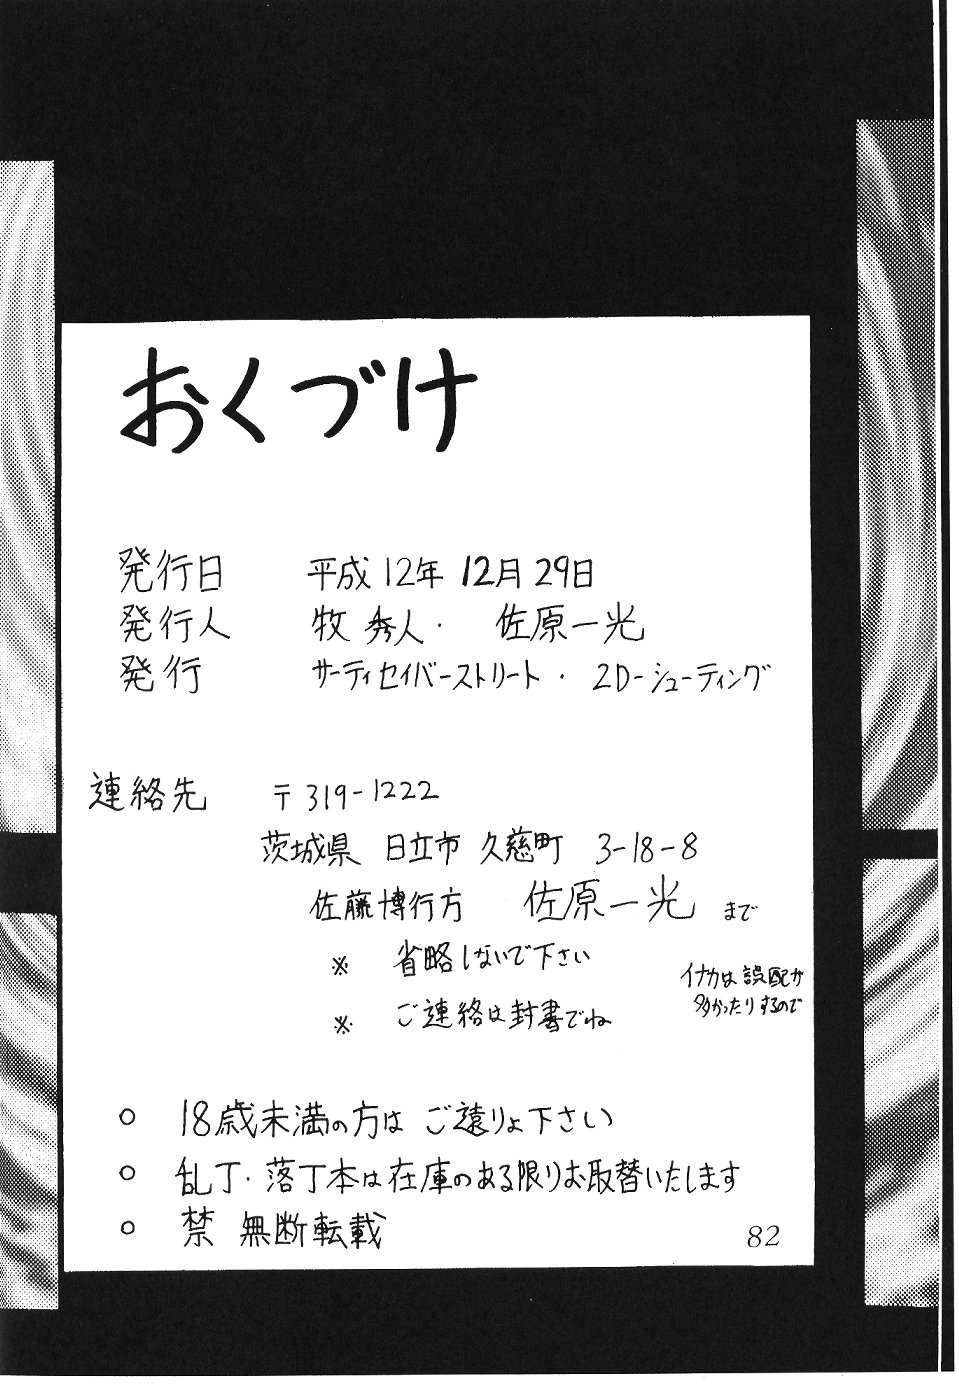 おくづけ
発行日 平成12年 12月29日
発行人 牧 秀人・ 佐原一光
発行 サーティセイバーストリート ・ 2D-シューティング
連絡先 〒319-1222
茨城県 日立市 久慈町 3-18-8
佐藤博行方 佐原一光 まで
※ 省略しないで下さい
※ ご連絡は封書でね
イナカは誤配が
多かったりするので
○ 18歳未満の方は ご遠りょ下さい
○ 乱丁・落丁本は在庫のある限りお取替いたします
○ 禁 無断転載
82